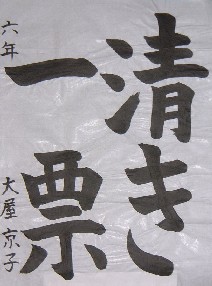 清き
一票
六年 大屋京子